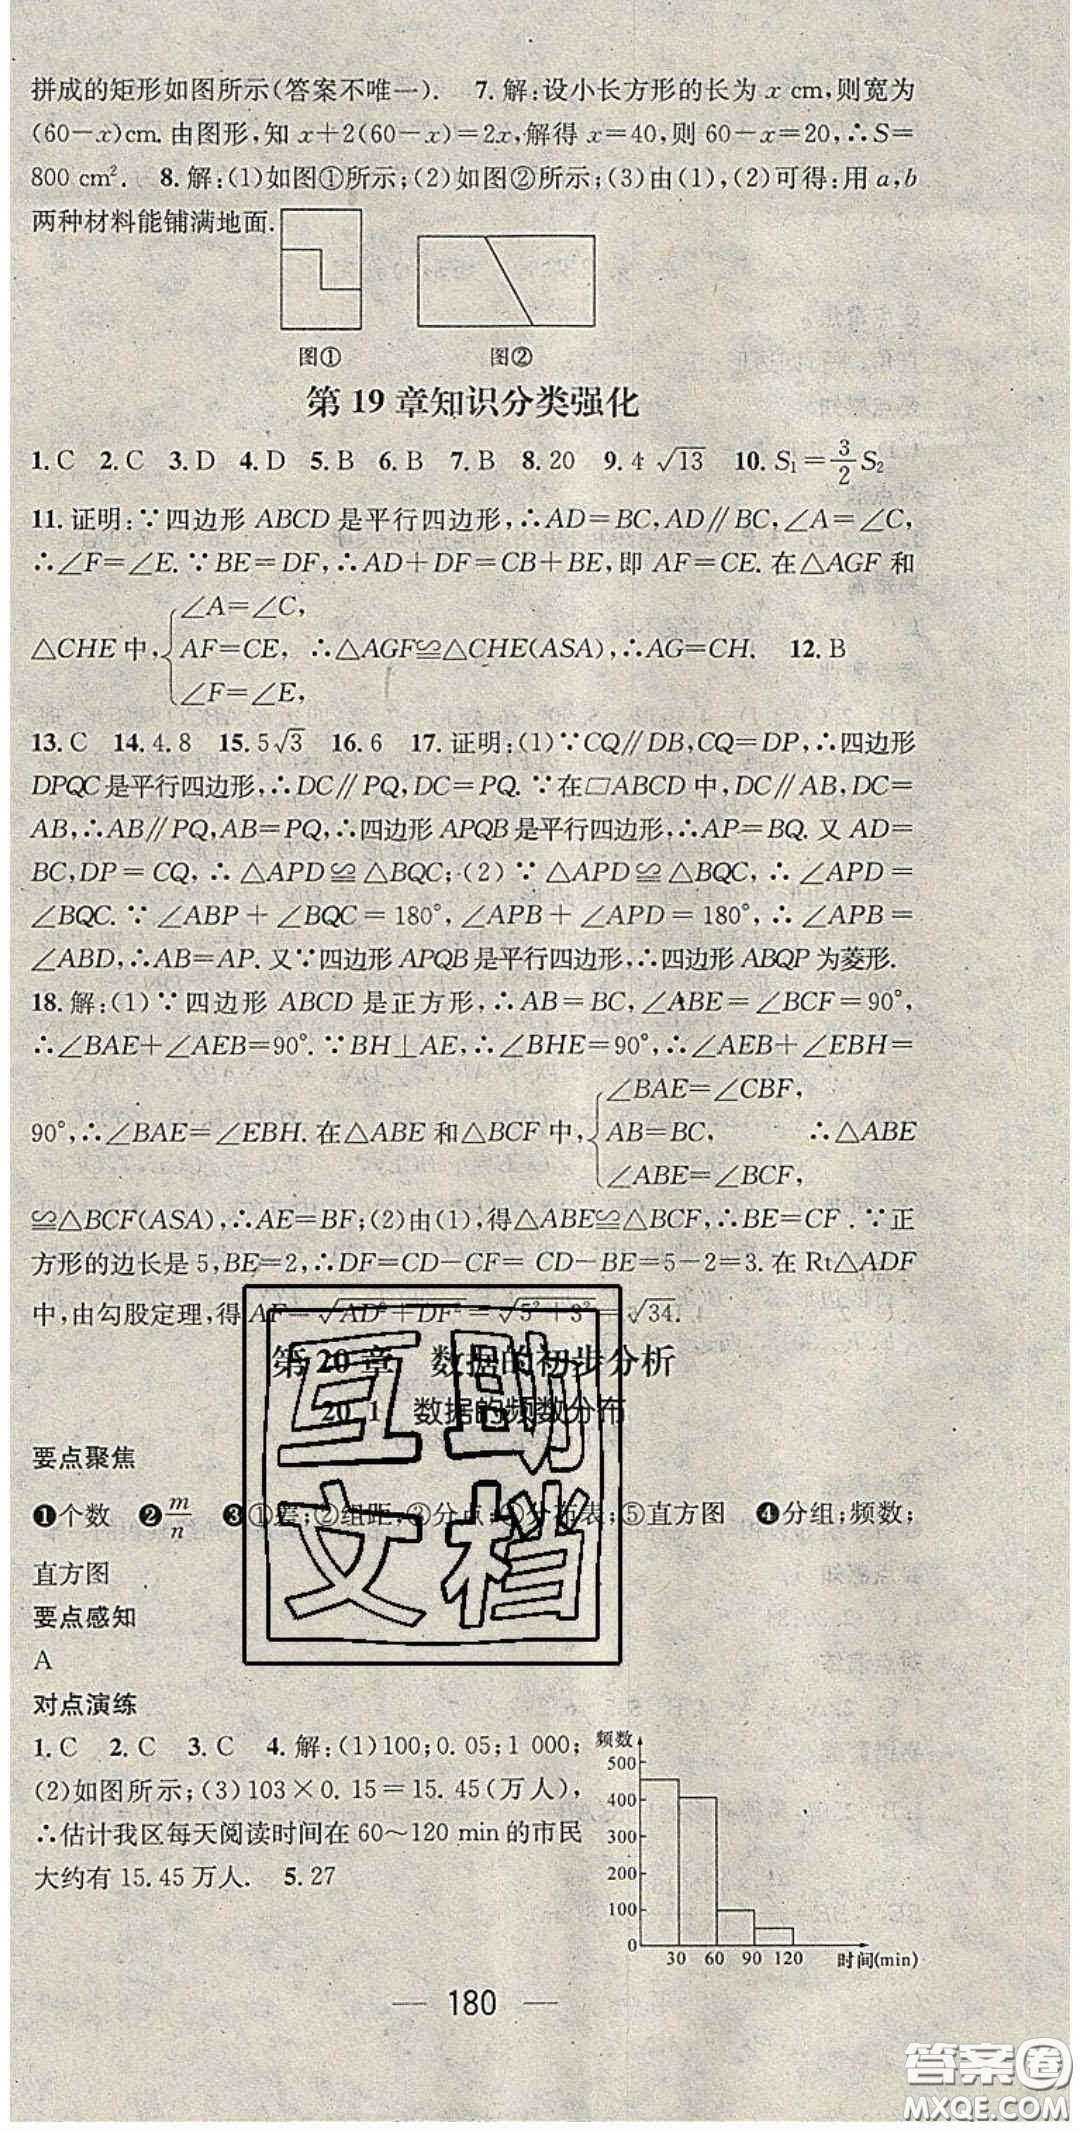 拼成的矩形如图所示(答案不唯一). 7.解:设小长方形的长为 x cm,则宽为
(60-x)cm.由图形,知 x+2(60-x)=2x,解得 x=40,则 60-x=20,∴S=
800 cm². 8.解:(1)如图①所示;(2)如图②所示;(3)由(1),(2)可得:用 a,b
两种材料能铺满地面.
图① 图②
第 19 章知识分类强化
1.C 2.C 3.D 4.D 5.B 6.B 7.B 8.20 9.4 √13 10.S₁=3/2 S₂
11.证明:∵四边形 ABCD 是平行四边形,∴AD=BC,AD∥BC,∠A=∠C,
∴∠F=∠E.∵BE=DF,∴AD+DF=CB+BE,即 AF=CE.在△AGF 和
∠A=∠C,
△CHE 中, AF=CE, ∴△AGF≌△CHE(ASA),∴AG=CH. 12.B
∠F=∠E,
13.C 14.4.8 15.5√3 16.6 17.证明:(1)∵CQ∥DB,CQ=DP,∴四边形
DPQC 是平行四边形,∴DC∥PQ,DC=PQ.∵在▱ABCD 中,DC∥AB,DC=
AB,∴AB∥PQ,AB=PQ,∴四边形 APQB 是平行四边形,∴AP=BQ.又 AD=
BC,DP=CQ,∴△APD≌△BQC;(2)∵△APD≌△BQC,∴∠APD=
∠BQC.∵∠ABP+∠BQC=180°,∠APB+∠APD=180°,∴∠APB=
∠ABD,∴AB=AP.又∵四边形 APQB 是平行四边形,∴四边形 ABQP 为菱形.
18.解:(1)∵四边形 ABCD 是正方形,∴AB=BC,∠ABE=∠BCF=90°,
∴∠BAE+∠AEB=90°.∵BH⊥AE,∴∠BHE=90°,∴∠AEB+∠EBH=
∠BAE=∠CBF,
90°,∴∠BAE=∠EBH.在△ABE 和△BCF 中, AB=BC, ∴△ABE
∠ABE=∠BCF,
≌△BCF(ASA),∴AE=BF;(2)由(1),得△ABE≌△BCF,∴BE=CF.∵正
方形的边长是 5,BE=2,∴DF=CD-CF=CD-BE=5-2=3.在 Rt△ADF
中,由勾股定理,得 AF=√AD²+DF²=√5²+3²=√34.
第 20 章 数据的初步分析
20.1 数据的频数分布
要点聚焦
❶个数 ❷m/n ❸①差;②组距;③分点;④分布表;⑤直方图 ❹分组;频数;
直方图
要点感知
A
对点演练
1.C 2.C 3.C 4.解:(1)100;0.05;1 000;
(2)如图所示;(3)103×0.15=15.45(万人),
∴估计我区每天阅读时间在 60~120 min 的市民
大约有 15.45 万人. 5.27
频数
500
400
300
200
100
0
30 60 90 120 时间(min)
互助
文档
— 180 —
答案圈
MXQE.COM